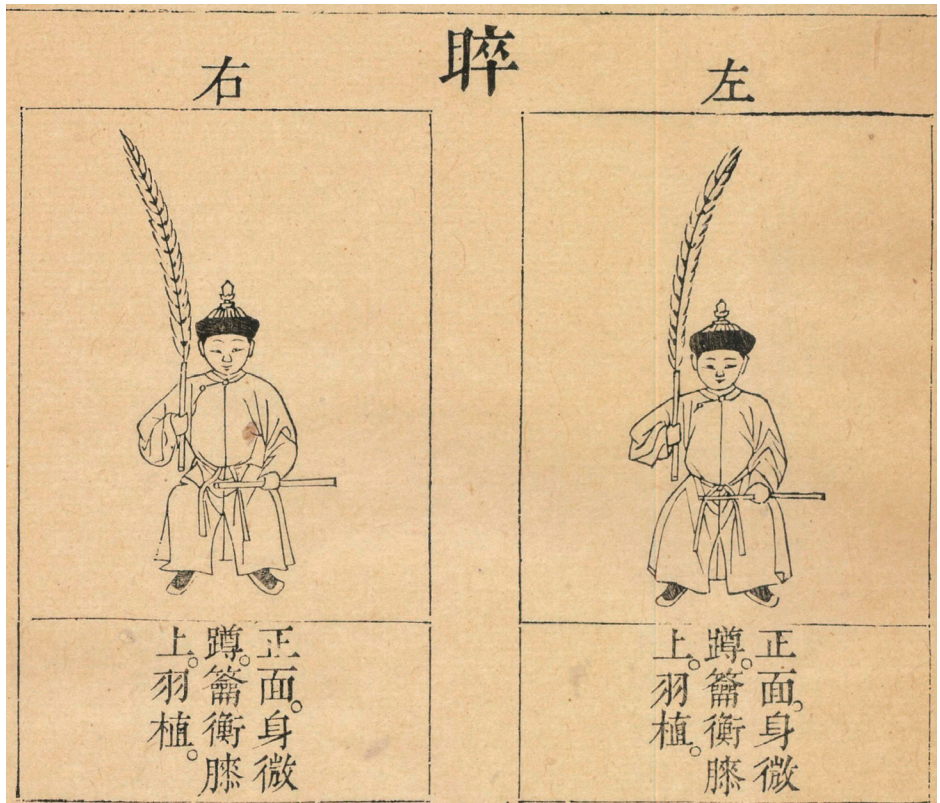 睟
左
正面。身微
蹲。籥衡膝
上。羽植。
右
正面。身微
蹲。籥衡膝
上。羽植。